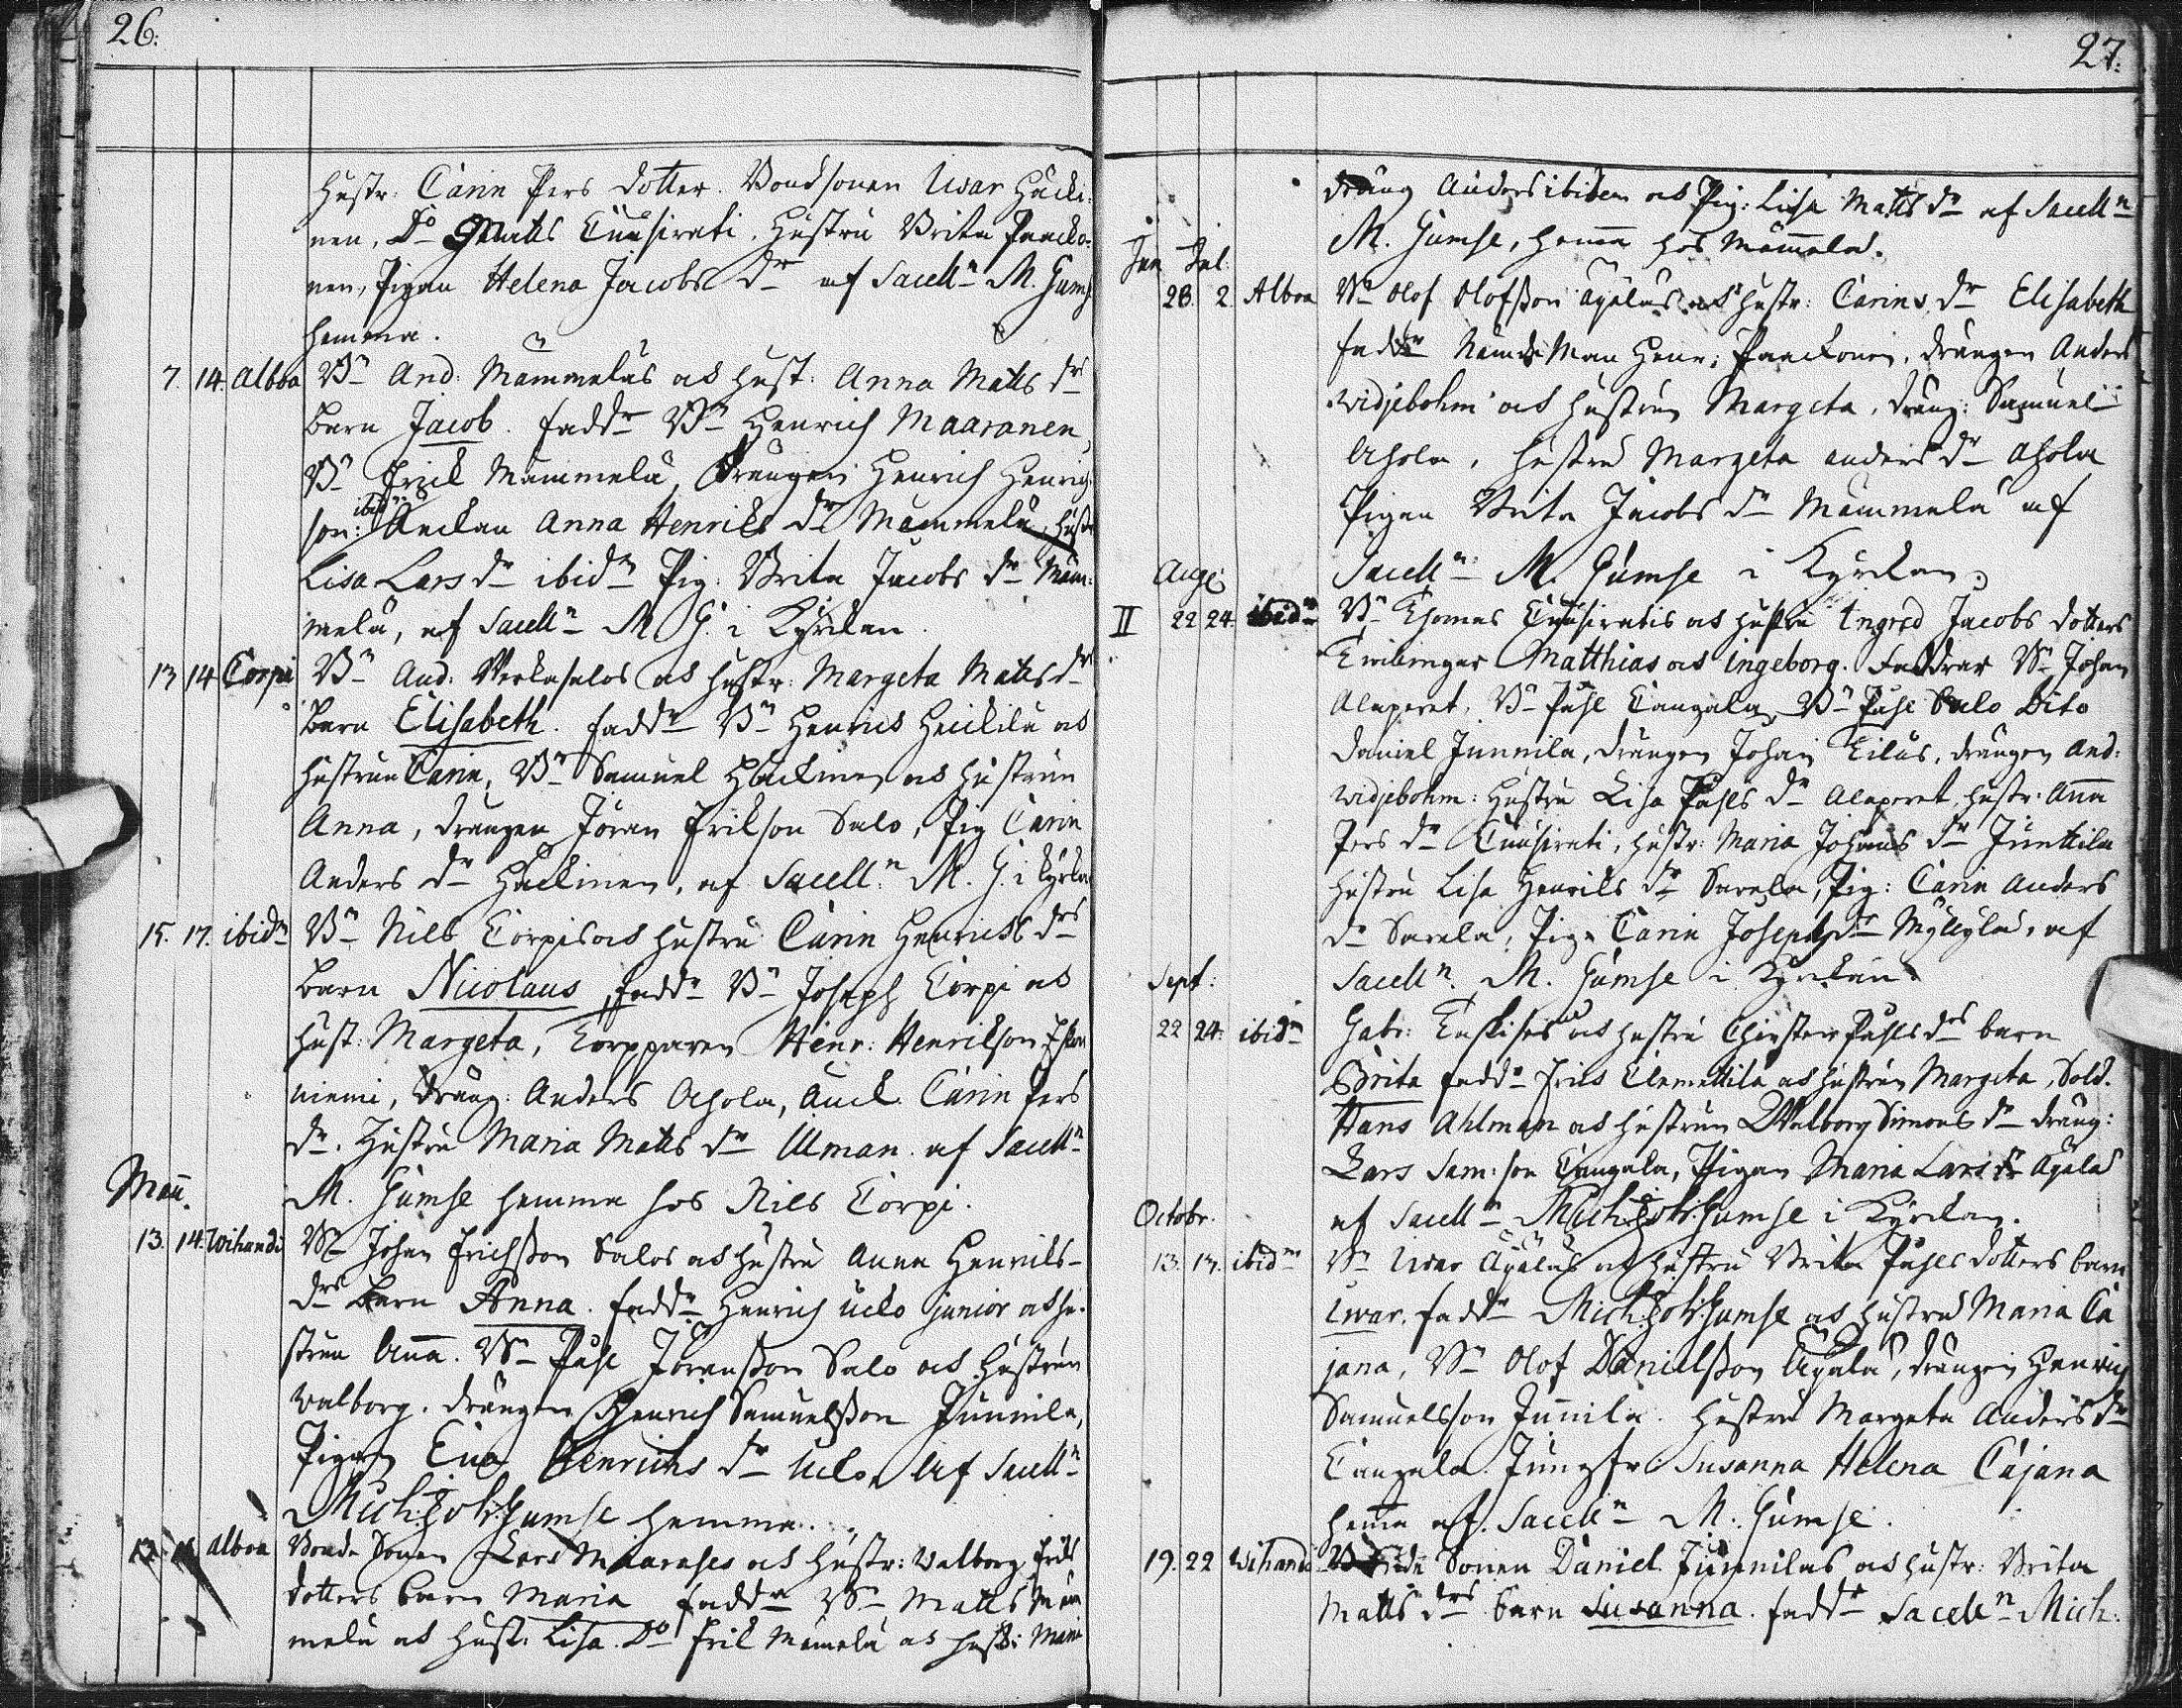 26:
Hustr: Carin Pers dotter. Bondsonen Ivar Hacki-
nen, Do Matts Tuusirati, Hustru Brita Paacko-
nen, Pigan Helena Jacobs dr af Sacelln M. Gums
hemma.
7. 14. Alboa Bn And: Mämmeläs och Hust: Anna Matts drs
barn Jacob. Faddr Bn Henrich Maaranen,
Bn Erick Mämmelä, Drängen Henrich Henrich
son: ibid Enckan Anna Henriks dr Mämmelä, Hustr
Lisa Lars dr ibidm Pig: Brita Jacobs dr Mäm-
melä, af Sacelln M G. i Kyrckan.
13 14 Corpi Bn And: Verkasalos och Hustr: Margeta Matts drs
Barn Elisabeth. Faddr Bn Henrics Heickilä och
hustrun Carin, Bn Samuel Hackinen och hustrun
Anna, drängen Jöran Erikson Salo, Pig Carin
Anders dr Hackinen, af Sacelln M. G. i Kyrka
15. 17. ibidm Bn Nils Corpis och hustru Carin Henrichs drs
Barn Nicolaus, Faddr Bn Joseph Corpi och
Hust: Margeta, Torpparen Henr: Henrikson
niemi, Dräng: Anders Ahola, Enck. Carin Pers
dr. Hustru Maria Matts dr Ulman af Sacelln
M. Gumse hemma hos Nils Corpi.
Maii.
13. 14. Wihandi Bn Johan Erichsson Salos och hustru Anna Henriks-
drs Barn Anna. Faddr Henrich Uelo junior och hu-
strun Anna. Bn Påhl Jöransson Salo och Hustrun
Walborg. Drängen Henrich Samuelsson Junnila,
Pigan Eva Henrichs dr Uelo, Af Sacelln
Mich: Joh: Gumse hemma.
Alboa Bonde Sonen Lars Maarases och hustr: Valborg Eriks
dotters barn Maria Faddr Bn Matts Mäm
melä och Hust: Lisa. Do Erik Mämelä och hust: Maria
27:
dräng Anders ibidem och Pig: Lisa Matts dr af Sacelln
M. Gumse, hemma hos Mämmelä.
Jun Jul.
28. 2 Alboa Bn Olof Olofsson Äyäläs och hustr: Carins dr Elisabeth
Faddr Nämde Man Henr: Paackonen, drängen Anders
Widjebohm och hustrun Margeta, dräng: Samuel
Ahola, hustru Margeta Anders dr Ahola
Pigan Brita Jacobs dr Mämmelä af
Sacelln M. Gumse i Kyrckan.
Aug:
II 22 24. ibidm Bn Thomas Tuusiratis och hustru Ingred Jacobs dotters
Twilingar Matthias och Ingeborg. Faddrar Bn Johan
Alaperet, Bn Påhl Cangala, Bn Påhl Salo Dito
Daniel Junnila, drängen Johan Eiläs, drängen And:
Widjebohm: Hustru Lisa Påhls dr Alaperet, hustr: Anna
Pers dr Tuusirati, Hustr: Maria Johans dr Junttila
Hustru Lisa Henriks dr Sarela, Pig: Carin Anders
dr Sarela, Pig. Carin Josephs dr Myllylä, af
Sacelln. M. Gumse i Kyrckan.
Sept:
22 24. ibidm Gabr: Taskises och hustru Chirstin Påhls drs barn
Brita Faddr Erics Clemettilä och hustrun Margeta, Sold.
Hans Ahlman och hustrun Walborg Simons dr dräng:
Lars Sam: son Cangala, Pigan Maria Lars dr Äyälä
af Sacelln Mich: Joh: Gumse i Kyrckan.
Octobr.
13. 17. ibidm Bn Ivar Äyäläs och hustru Brita Påhls dotters barn
Ivar. Faddr Mich: Joh: Gumse och hustru Maria Ca
jana, Bn Olof Danielsson Äyälä, drängen Henrich
Samuelsson Junnila. Hustru Margeta Anders dr
Cangala. Jungfr: Susanna Helena Cajana
hemma af Sacelln M. Gumse.
19. 22 Wihandi Bonde Sonen Daniel Junnilas och hustr: Brita
Matts drs barn Susanna. Faddr Sacelln Mich: